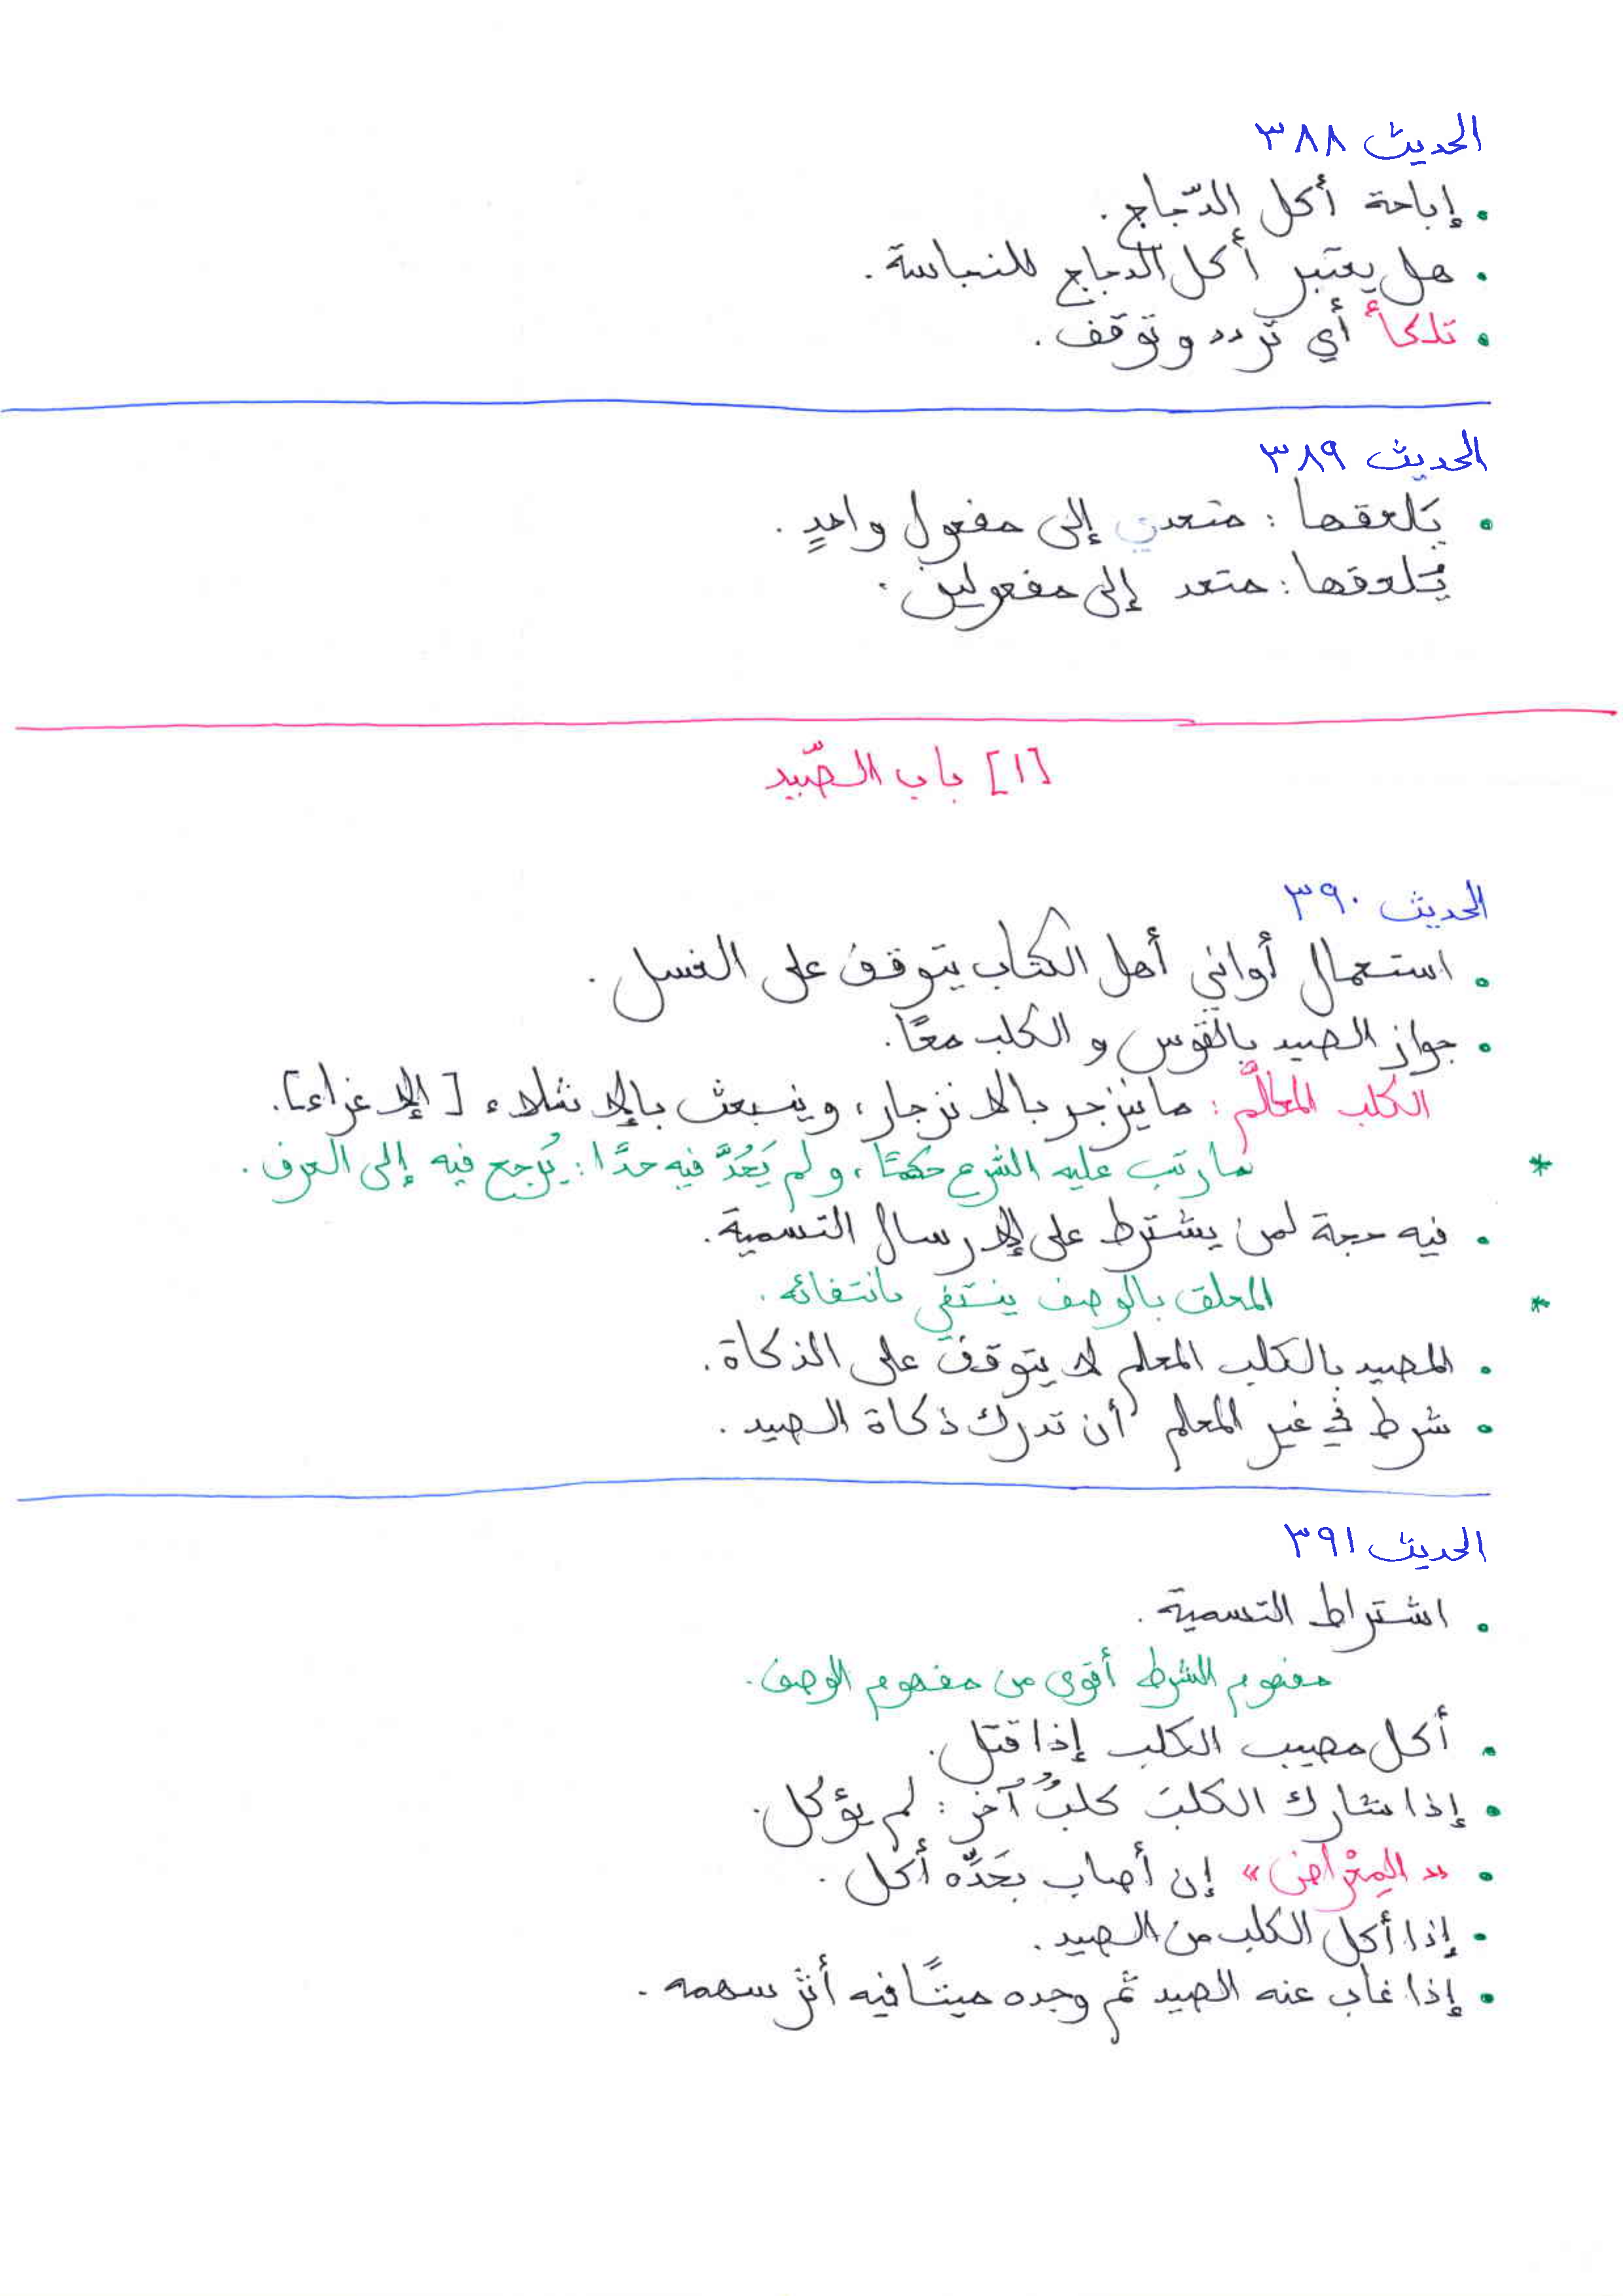 الحديث ٣٨٨
• إباحة أكل الدّجاج.
• هل يعتبر أكل الدجاج للنجاسة.
• تلكأ أي تردد وتوقف.
الحديث ٣٨٩
• يَلعقها: متعدي إلى مفعول واحدٍ.
يُلعقها: متعد إلى مفعولين.
[١] باب الصّيد
الحديث ٣٩٠
• استعمال أواني أهل الكتاب يتوقف على الغسل.
• جواز الصيد بالقوس و الكلب معًا.
الكلب المعلَّم: ما ينزجر بالانزجار، وينبعث بالإشلاء [الإغراء].
* ما رتب عليه الشرع حكمًا، ولم يَعُدَّ فيه حدًّا: يُرجع فيه إلى العرف.
• فيه حجة لمن يشترط على الإرسال التسمية.
* المعلق بالوصف ينتفي بانتفائه.
• المصيد بالكلب المعلم لا يتوقف على الذكاة.
• شرط في غير المعلم أن تدرك ذكاة الصيد.
الحديث ٣٩١
• اشتراط التسمية.
مفهوم الشرط أقوى من مفهوم الوصف.
• أكل مصيب الكلب إذا قتل.
• إذا شارك الكلبَ كلبٌ آخرُ: لم يؤكل.
• «المِعْراض» إن أصاب بحَدِّه أكل.
• إذا أكل الكلب من الصيد.
• إذا غاب عنه الصيد ثم وجده ميتًا فيه أثر سهمه.